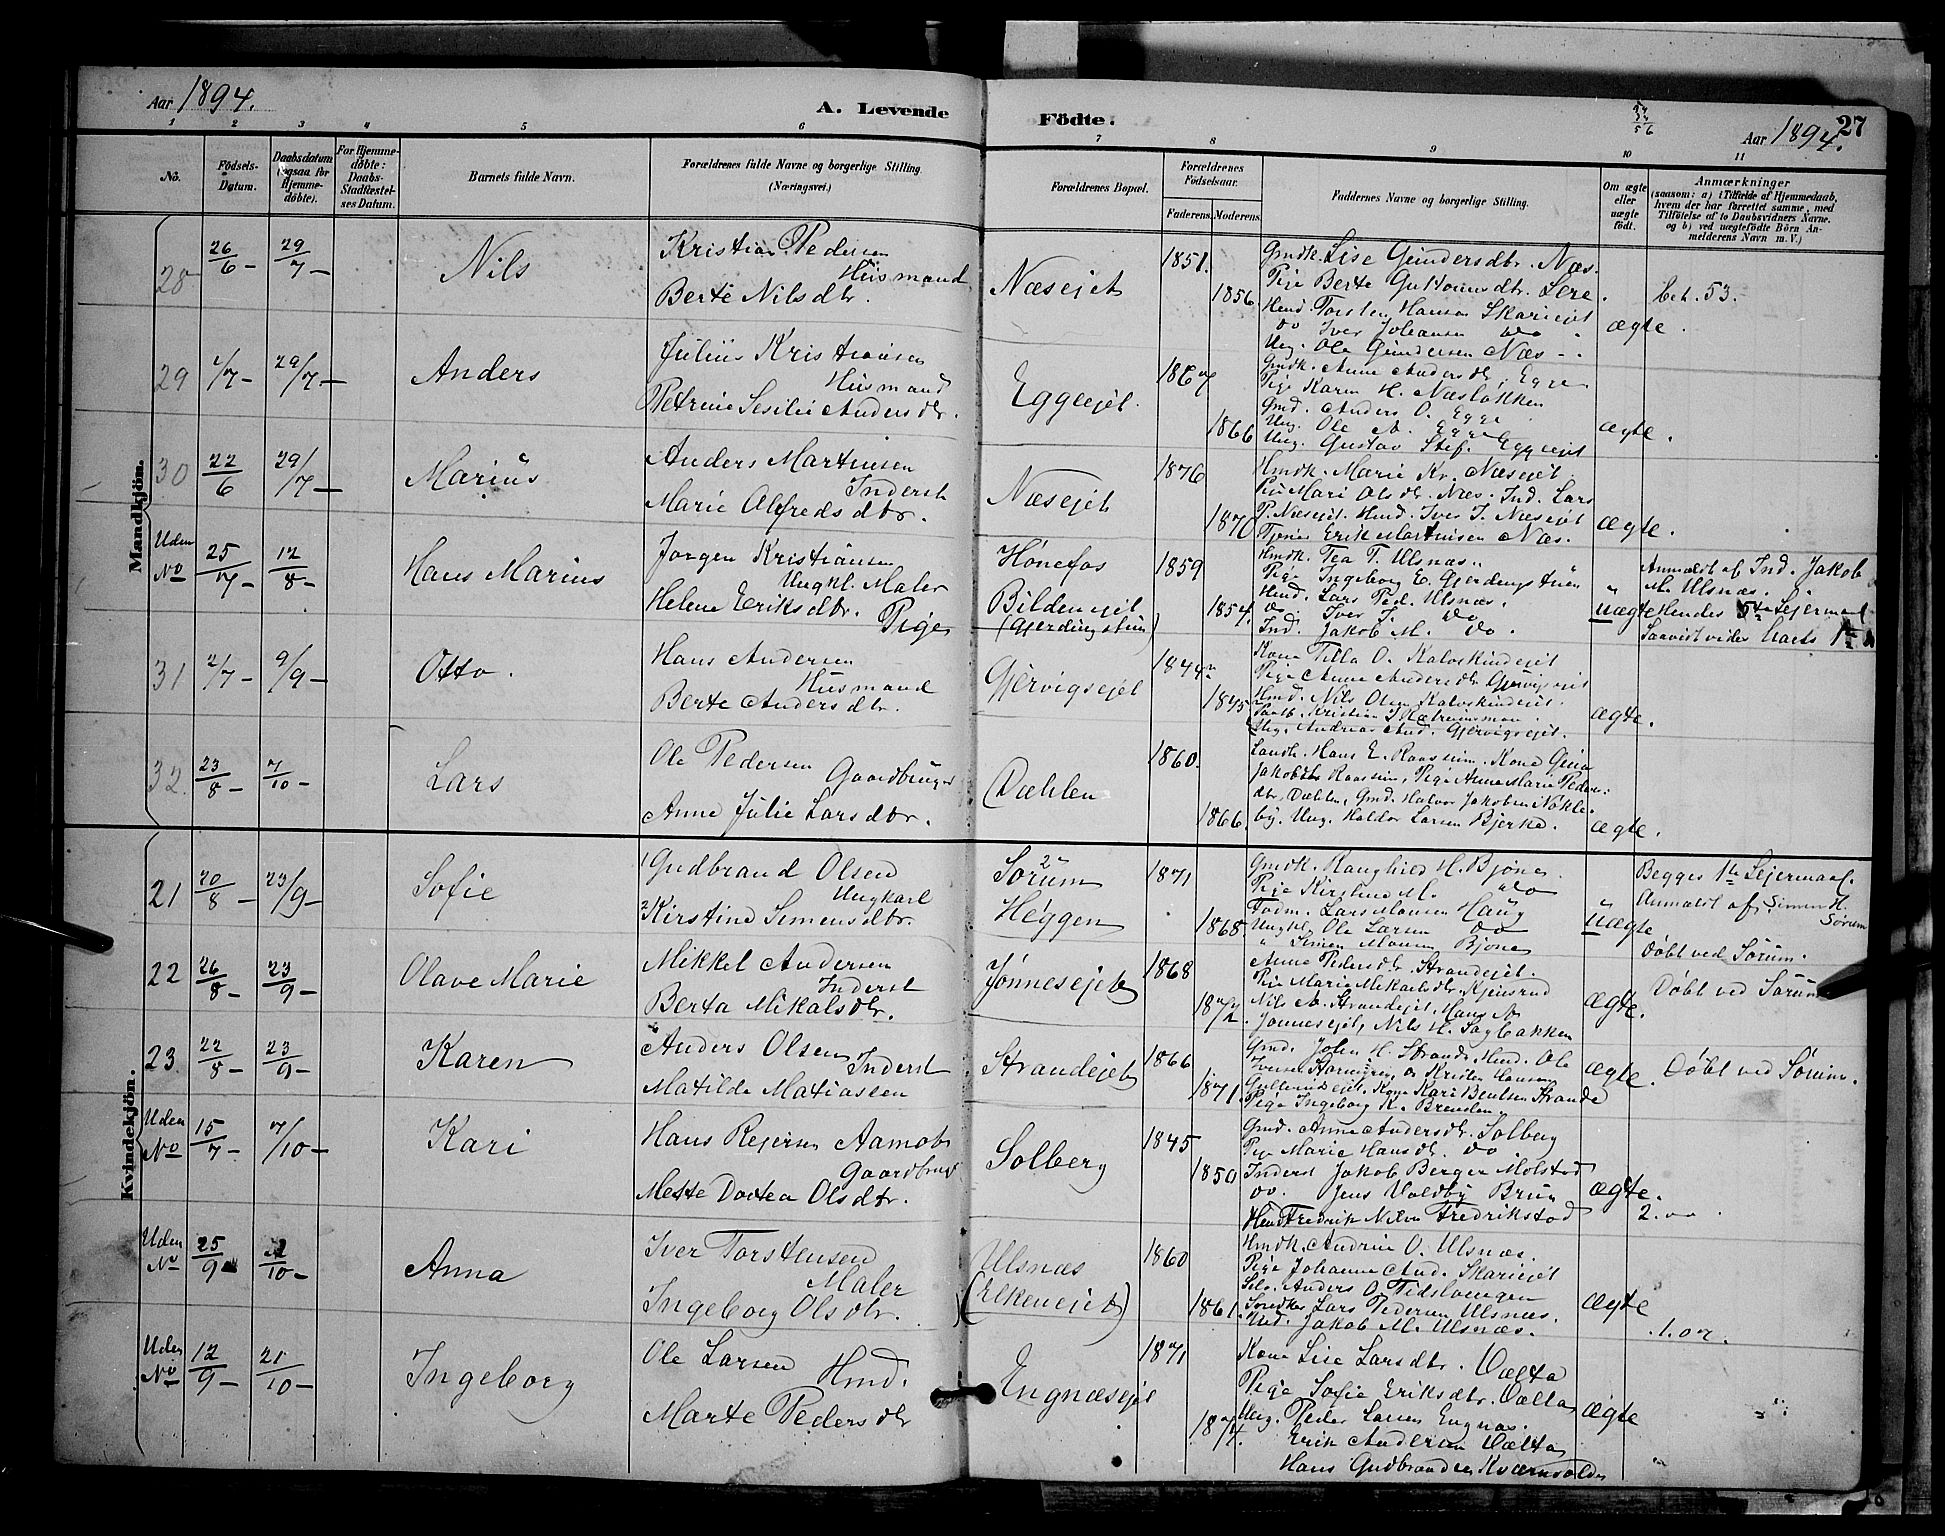 Aar 1894.
A. Levende
Fødte.
Aar 1894.
27
1 2 3 4 5 6 7 8 9 10 11
No.
Fødsels-
Datum.
Daabsdatum
(ogsaa for
Hjemme-
døbte).
For Hjemme-
døbte:
Daabs-
Stadfæstel-
ses Datum.
Barnets fulde Navn.
Forældrenes fulde Navne og borgerlige Stilling.
(Næringsvei.)
Forældrenes Bopæl.
Forældrenes
Fødselsaar.
Faderens. Moderens.
Faddernes Navne og borgerlige Stilling.
Om ægte
eller
uægte
født.
Anmærkninger
(saasom: a) i Tilfælde af Hjemmedaab,
hvem der har forrettet samme, med
Tilføielse af to Daabsvidners Navne,
og b) ved uægtefødte Børn An-
melderens Navn m. V.)
Mandkjøn.
28 26/6 - 29/7 - Nils
Kristian Pedersen
Husmand
Berte Nilsdtr.
Næsejet
1851.
1856.
Gmdk. Lise Gundersdtr. Næs.
Pige Berte
Husd. Torsten Hansen Skariejet
do Iver Johansen do
Ung. Ole Gundersen Næs
ægte.
bet. 53.
29 1/7 - 29/7 - Anders
Julius Kristiansen
Husmand
Petrine Sesilie Andersdtr.
Eggeejet.
1867
1866
Gmdk. Anne Andersdtr. Egge
Pige Karen H. Næsløkken
Gmd. Anders O. Egge
Ung. Ole A. Egge
Ung. Gustav Stef. Eggeejet
ægte.
30 22/6 29/7 - Marius
Anders Martinsen
Inderst
Marie Alfredsdtr.
Næsejet
1876
1870
Hmdk. Marie Kr. Næsejet.
Pige Mari Olsdtr. Næs. Ind. Lars
P. Næsejet. Husd. Iver J. Næsejet
Tjener Erik Martinsen Næs.
ægte.
Uden
No 25/7 - 12/8 - Hans Marius
Jørgen Kristiansen
Ungkl. Maler
Helene Eriksdtr. Pige
Hønefos
Bildenejet
(Gjerdingstuen)
1859
1854.
Hmdk. Tea T. Ulsnæs.
Pige Ingeborg E. Gjerdingstuen
Husd. Lars Ped. Ulsnæs.
do. Iver J. do
Ind. Jakob M. do.
uægte
Anmeldt af Ind. Jakob
M. Ulsnæs.
Hendes 5te Leiermaal
Saavidt vides hans 1ste
31 2/7 - 9/9 - Otto.
Hans Andersen
Husmand
Berte Andersdtr.
Gjervigsejet
1844
1845
Kone Tilla O. Kalvskindejet
Pige Anne Andersdtr. Gjervigsejet
Hmd. Nils Olsen Kalvskindejet.
Ung. Andreas And. Gjervigsejet.
ægte.
32. 23/8 - 7/10 - Lars
Ole Pedersen
Gaardbruger
Anne Julie Larsdtr.
Dæhlen
1860.
1866.
Landh. Hans E. Raassum. Kone Gina
Jakobsdtr. Raassum, Pige Anne Marie Peders-
dtr. Dæhlen, Gmd. Halvor Jakobsen Nøkle-
by. Ung. Haldor Larsen Bjerke.
ægte.
Kvindekjøn.
21 20/8 - 23/9 - Sofie
1 Gudbrand Olsen
Ungkarl
2 Kirstine Simensdtr.
2
Sørum
Heggen
1871
1868.
Gmdk. Ranghild H. Bjones.
Pige Kirstine M. do
Lars Monsen Haug
Ungkl. Ole Larsen do
" Simen Monsen Bjones
uægte
Begges 1ste Lejermaal.
Anmeldt af Simen H.
Sørum
Døbt ved Sørum.
22 26/8 - 23/9 - Olave Marie
Mikkel Andersen
Inderst
Berta Mikalsdtr.
Jønnesejet
1868
1872.
Anne Pedersdtr. Strandejet.
Pige Marie Mikalsdtr. Kjensrud
Nils A. Strandejet, Hans A.
Jønnesejet, Nils H. Sagbakken
ægte.
Døbt ved Sørum
23. 22/8 - 23/9 - Karen
Anders Olsen
Inderst
Matilde Matiassen
Strandejet
1866
1871.
Gmd. John H. Strande Husd. Ole
Kone Kari Bentsen Strande
Pige Ingeborg K. Brenden.
ægte.
Døbt ved Sørum.
Uden
No 15/7 - 7/10 - Kari
Hans Rejersen Aamodt
Gaardbruger
Mette Dortea Olsdtr.
Solberg
1845
1850
Gmd. Anne Andersdtr. Solberg
Pige Marie Hansdtr. do
Inderst Jakob Berger Molstad
do. Jens Valdby Brun
Fredrik Nilsen Fredrikstad
ægte.
Uden
No 25/9 2/10 - Anna
Iver Torstensen
Maler
Ingeborg Olsdtr.
Ulsnæs
(Elkenejet)
1860
1861.
Hmdk. Andrine O. Ulsnæs.
Pige Johanne And. Skariejet
Anders O. Fidslovengen
Lars Pedersen Ulsnæs.
Ind. Jakob M. Ulsnæs.
ægte
Uden
No 12/9 - 21/10 - Ingeborg
Ole Larsen Hmd.
Marte Pedersdtr
Engnæsejet
1871
1874.
Kone Lise Larsdtr. Vælta
Pige Sofie Eriksdtr. Vælta
Ung. Peder Larsen Engnæs.
Erik Andersen Vælta
Hans Gudbrandsen Kværnvolden
ægte